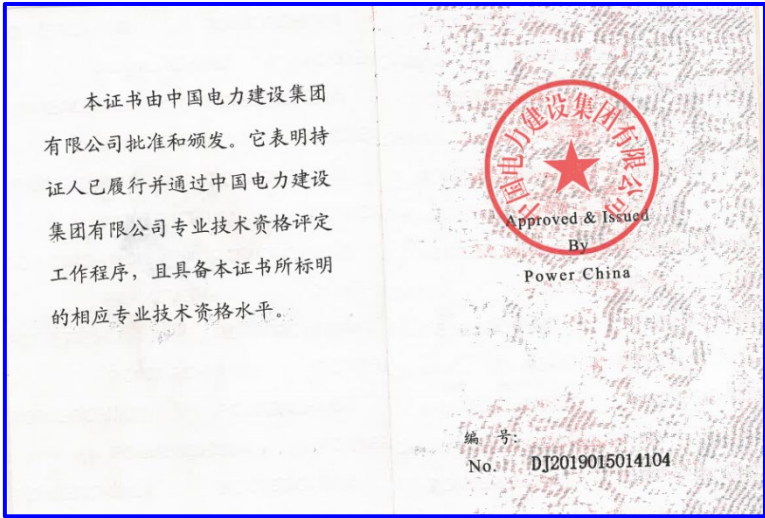 本证书由中国电力建设集团
有限公司批准和颁发。它表明持
证人已履行并通过中国电力建设
集团有限公司专业技术资格评定
工作程序，且具备本证书所标明
的相应专业技术资格水平。
中国电力建设集团有限公司
Approved & Issued
By
Power China
编 号:
No. DJ2019015014104